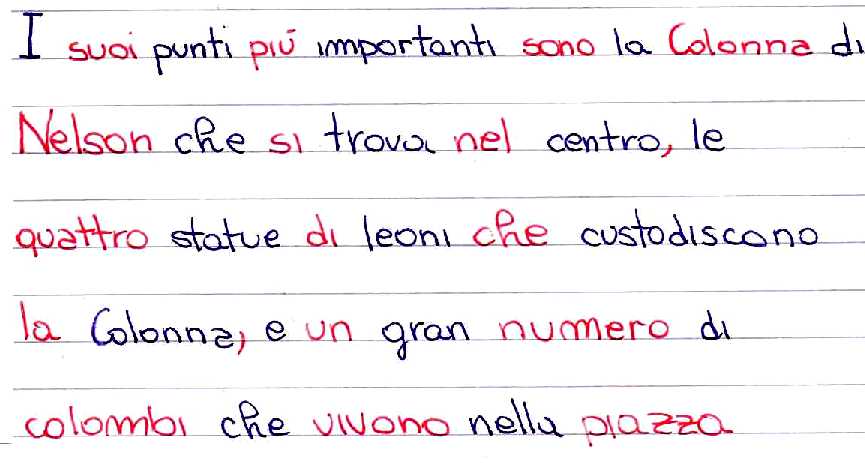 I suoi punti più importanti sono la Colonna di
Nelson che si trova nel centro, le
quattro statue di leoni che custodiscono
la Colonna, e un gran numero di
colombi che vivono nella piazza